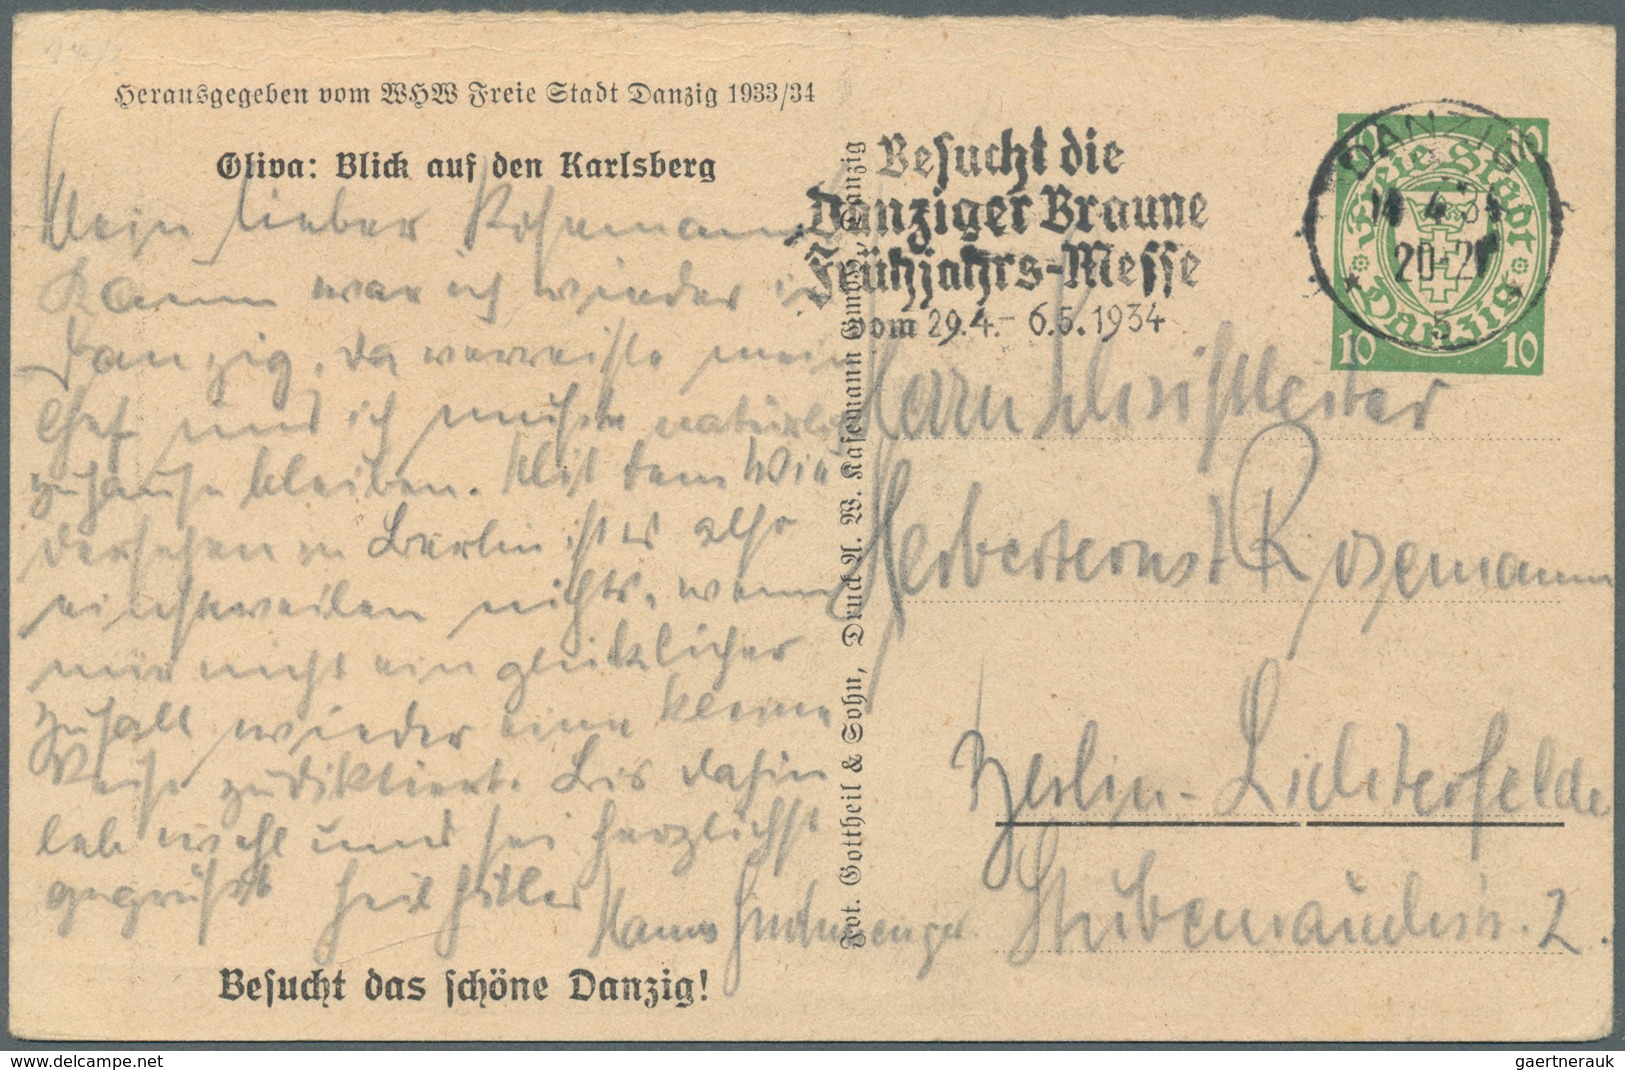 Herausgegeben vom WHW Freie Stadt Danzig 1933/34
Oliva: Blick auf den Karlsberg
Mein lieber Rosemann
Kaum war ich wieder in
Danzig, da verreiste mein
Chef und ich musste natürlich
zuhause bleiben. Mit dem Wie
dersehen in Berlin ist es also
einstweilen nichts, wenn
mir nicht ein glücklicher
Zufall wieder eine kleine
Reise zudiktiert. Bis dahin
leb wohl und sei herzlichst
gegrüsst Heil Hitler
Hanns
Besucht das schöne Danzig!
Fot. Gottheil & Sohn, Druck A. W. Kafemann GmbH, Danzig
Besucht die
Danziger Braune
Frühjahrs-Messe
vom 29.4.- 6.5.1934
DANZIG
14 4.34
20-21
5
10 10
Freie Stadt
Danzig
10 10
Herrn Schriftleiter
Herbert Ernst Rosemann
Berlin-Lichterfelde
Stubenrauchstr. 2.
www.delcampe.net
gaertnerauk